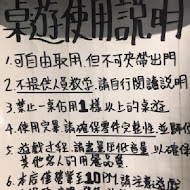 桌遊使用說明
1.可自由取用,但不可外帶出門
2.不提供人員教學,請自行閱讀說明
3.禁止一桌佔用1樣以上的桌遊
4.使用完畢,請確保零件完整性,並歸位
5.遊戲過程,請盡量壓低音量,以確保
其他客人的用餐品質.
6.本店僅營業至10PM,請注意遊戲